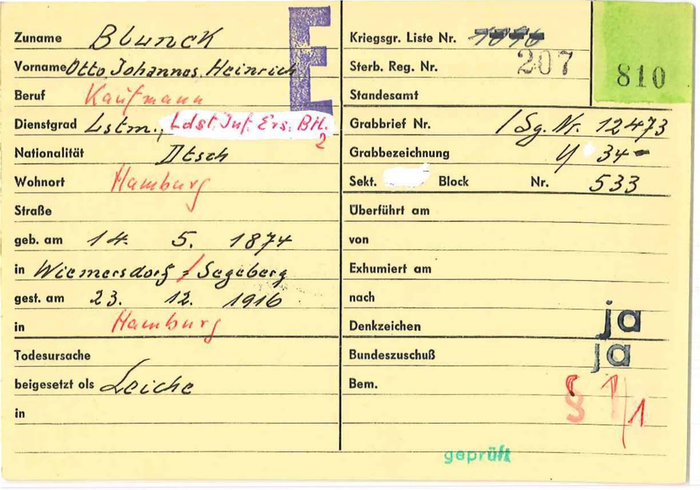 Zuname Blunck
E
Vorname Otto, Johannes, Heinrich
Beruf Kaufmann
Dienstgrad Lstm., Ldst. Inf. Ers. Btl. 2
Nationalität Dtsch
Wohnort Hamburg
Straße
geb. am 14. 5. 1874
in Wiemersdorf / Segeberg
gest. am 23. 12. 1916
in Hamburg
Todesursache
beigesetzt als Leiche
in
Kriegsgr. Liste Nr.
810
Sterb. Reg. Nr. 207
Standesamt
Grabbrief Nr. / Sg. Nr. 12473
Grabbezeichnung 34
Sekt. Block Nr. 533
Überführt am
von
Exhumiert am
nach
Denkzeichen ja
Bundeszuschuß ja
Bem. § 1/1
geprüft